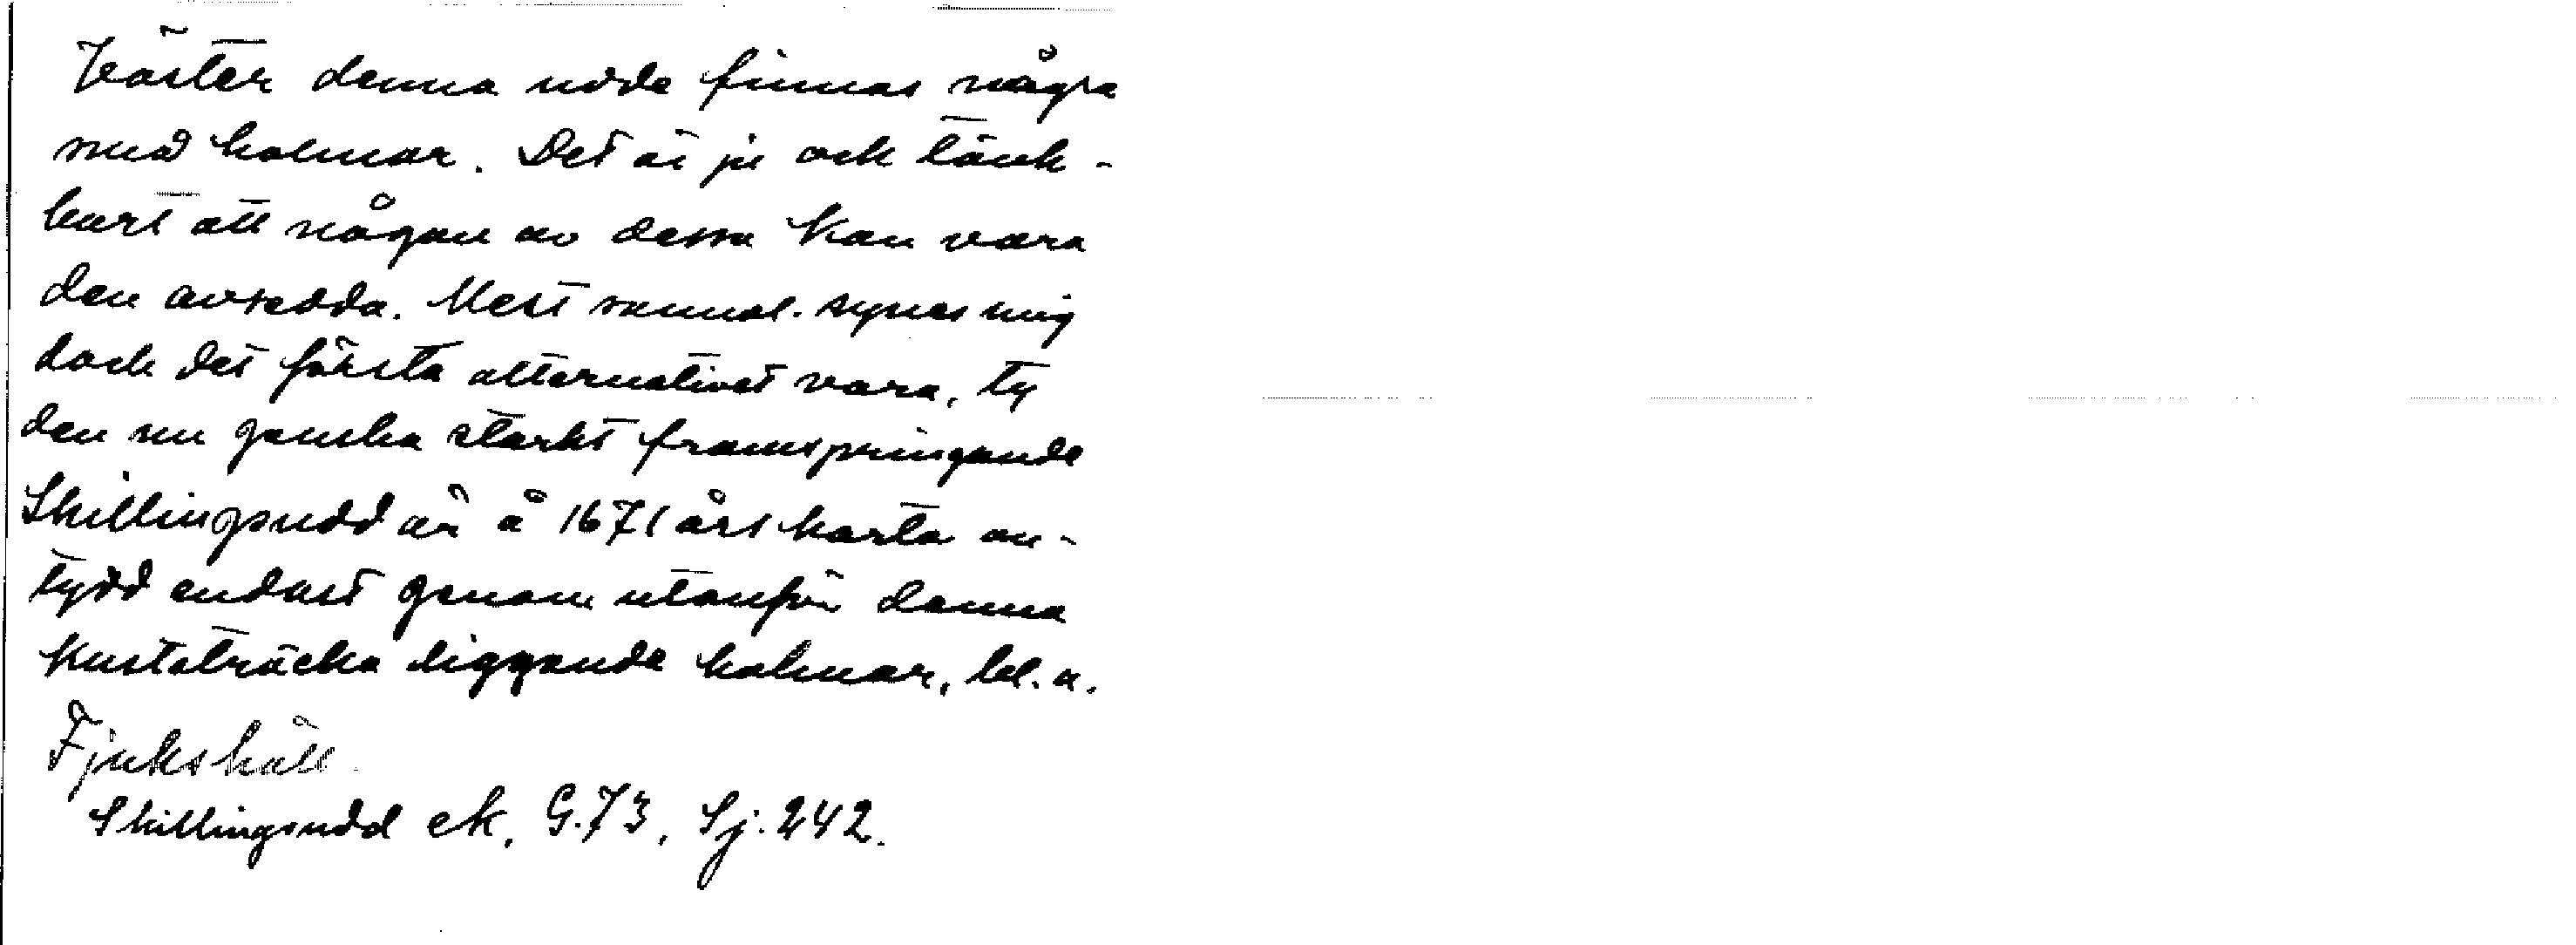 Väster denna udde finnas några
små holmar. Det är ju ock tänk-
bart att någon av dessa kan vara
den avsedda. Mest sannol. synes mig
dock det första alternativet vara, ty
den nu ganska starkt framspringande
Skillingsudd är å 1671 års karta an-
tydd endast genom utanför denna
kuststräcka liggande holmar, bl. a.
Fjukshäll.
Skillingsudd ek. G. 73, Sj. 242.